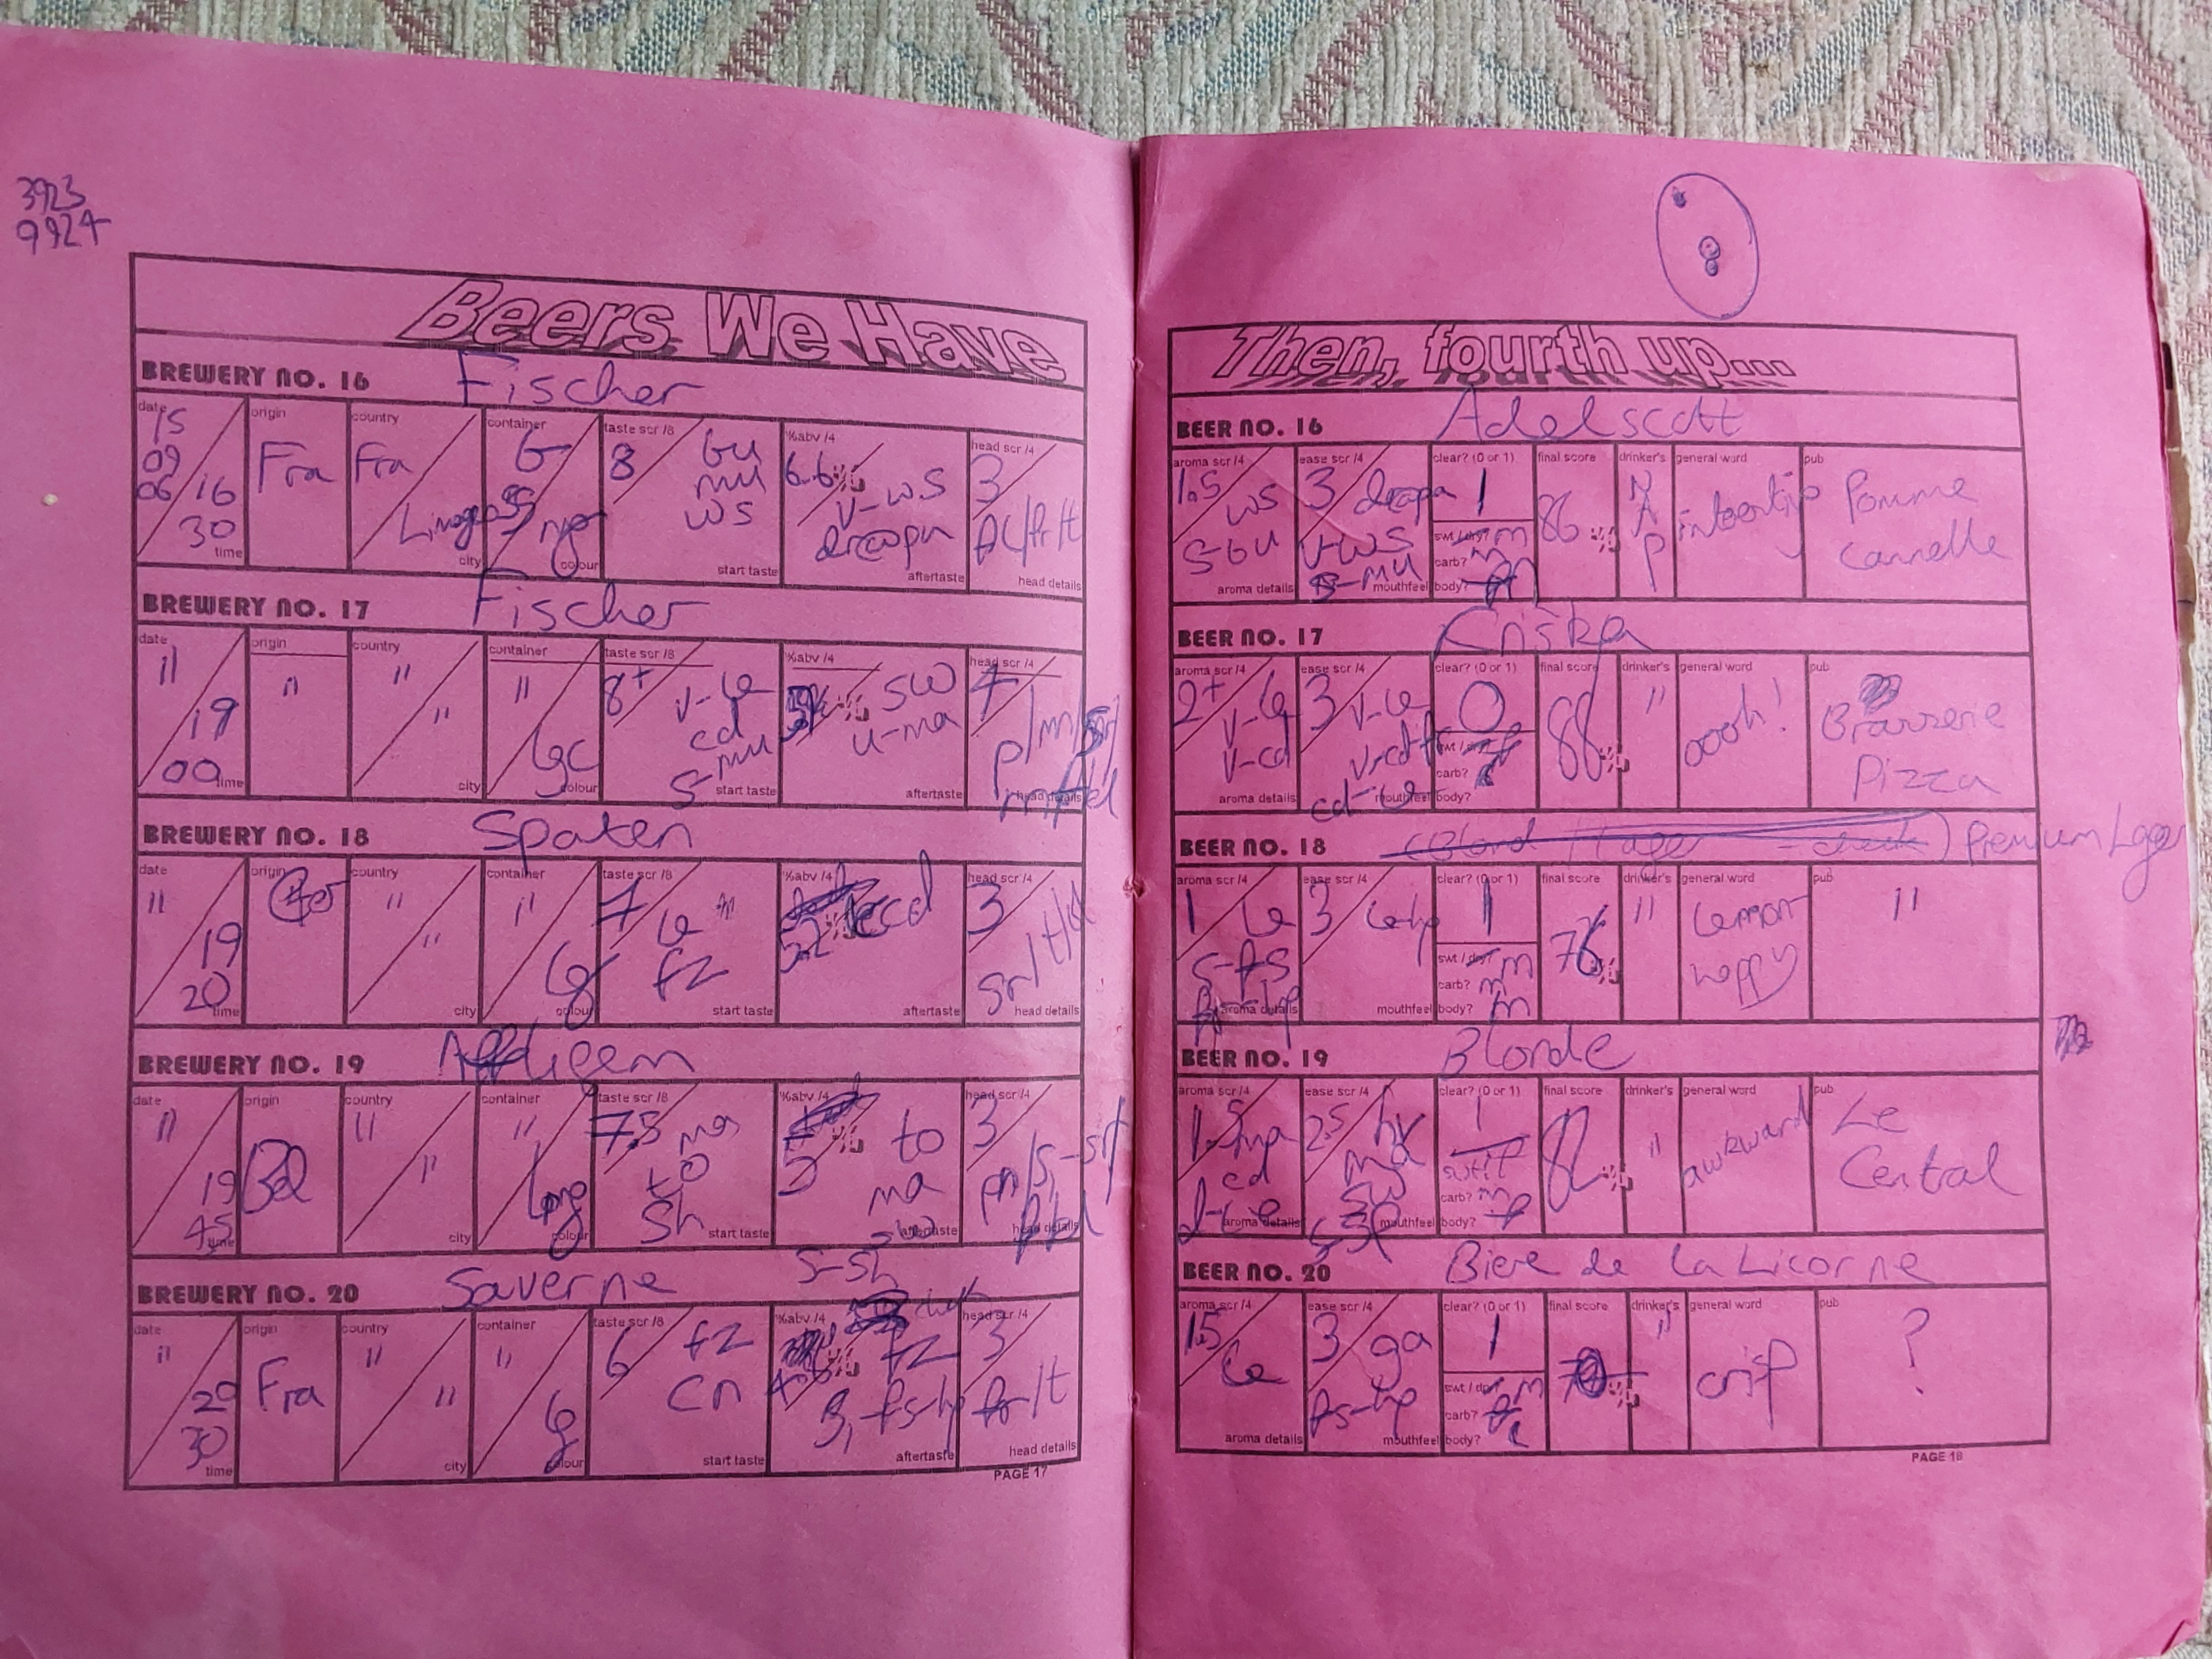 3923
9924
Beers We Have
BREWERY NO. 16 Fischer
date origin country container taste scr /8 %abv /4 head scr /4
15 09 06 16 30 Fra Fra Limoges 8 bu mu ws 6.6% v-ws 3
time city colour start taste aftertaste head details
BREWERY NO. 17 Fischer
date origin country container taste scr /8 %abv /4 head scr /4
" 19 00 " " " " 8+ v-le cd s-mu sw u-ma 4
time city colour start taste aftertaste head details
BREWERY NO. 18 Spaten
date origin country container taste scr /8 %abv /4 head scr /4
" 19 20 Ger " " " lg 7 le fz 5.2% 3
time city colour start taste aftertaste head details
BREWERY NO. 19 Affligem
date origin country container taste scr /8 %abv /4 head scr /4
" 19 45 Bel " " " 7.5 ma to sh 5% to ma sw s-sh 3
time city colour start taste aftertaste head details
BREWERY NO. 20 Saverne
date origin country container taste scr /8 %abv /4 head scr /4
" 20 30 Fra " " " lg 6 fz cn % fz 3 fr/t
time city colour start taste aftertaste head details
PAGE 17
Then, fourth up...
BEER NO. 16 Adelscott
aroma scr /4 ease scr /4 clear? (0 or 1) final score drinker's general word pub
1.5 ws s-bu 3 v-ws s-mu 1 86% N A P Pomme Cannelle
swt / dry? m
carb? m
aroma details mouthfeel body?
BEER NO. 17 Kriska
aroma scr /4 ease scr /4 clear? (0 or 1) final score drinker's general word pub
2+ v-le v-cd 3 v-le 0 88% " oooh! Brasserie Pizza
swt / dry?
carb?
aroma details mouthfeel body?
BEER NO. 18 (Blond / lager - check) Premium Lager
aroma scr /4 ease scr /4 clear? (0 or 1) final score drinker's general word pub
1 le s-fs 3 le-hp 1 76% " lemon-hoppy "
swt / dry? m
carb? m
aroma details mouthfeel body? m
BEER NO. 19 Blonde
aroma scr /4 ease scr /4 clear? (0 or 1) final score drinker's general word pub
1.5 ma cd 2.5 ma sw 1 82% " awkward Le Central
carb? m
aroma details mouthfeel body?
BEER NO. 20 Biere de la Licorne
aroma scr /4 ease scr /4 clear? (0 or 1) final score drinker's general word pub
1.5 le 3 ga fs-hp 1 % " crisp ?
swt / dry? m
carb?
aroma details mouthfeel body?
PAGE 18